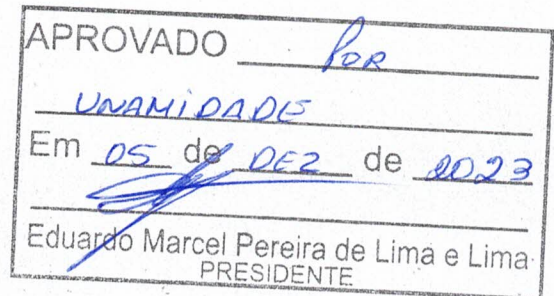 APROVADO POR
UNAMIDADE
Em 05 de DEZ de 2023
Eduardo Marcel Pereira de Lima e Lima
PRESIDENTE